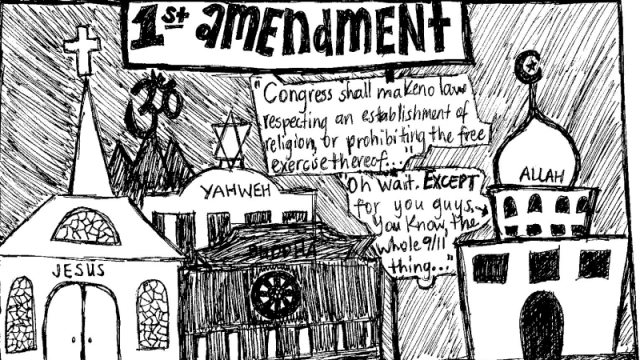 1st amENdmENt
"Congress shall make no law
respecting an establishment of
religion, or prohibiting the free
exercise thereof..."
"Oh wait. EXCEPT
for you guys.
You know, the
whole 9/11
thing..."
ॐ
YAHWEH
ALLAH
BUDDHA
JESUS